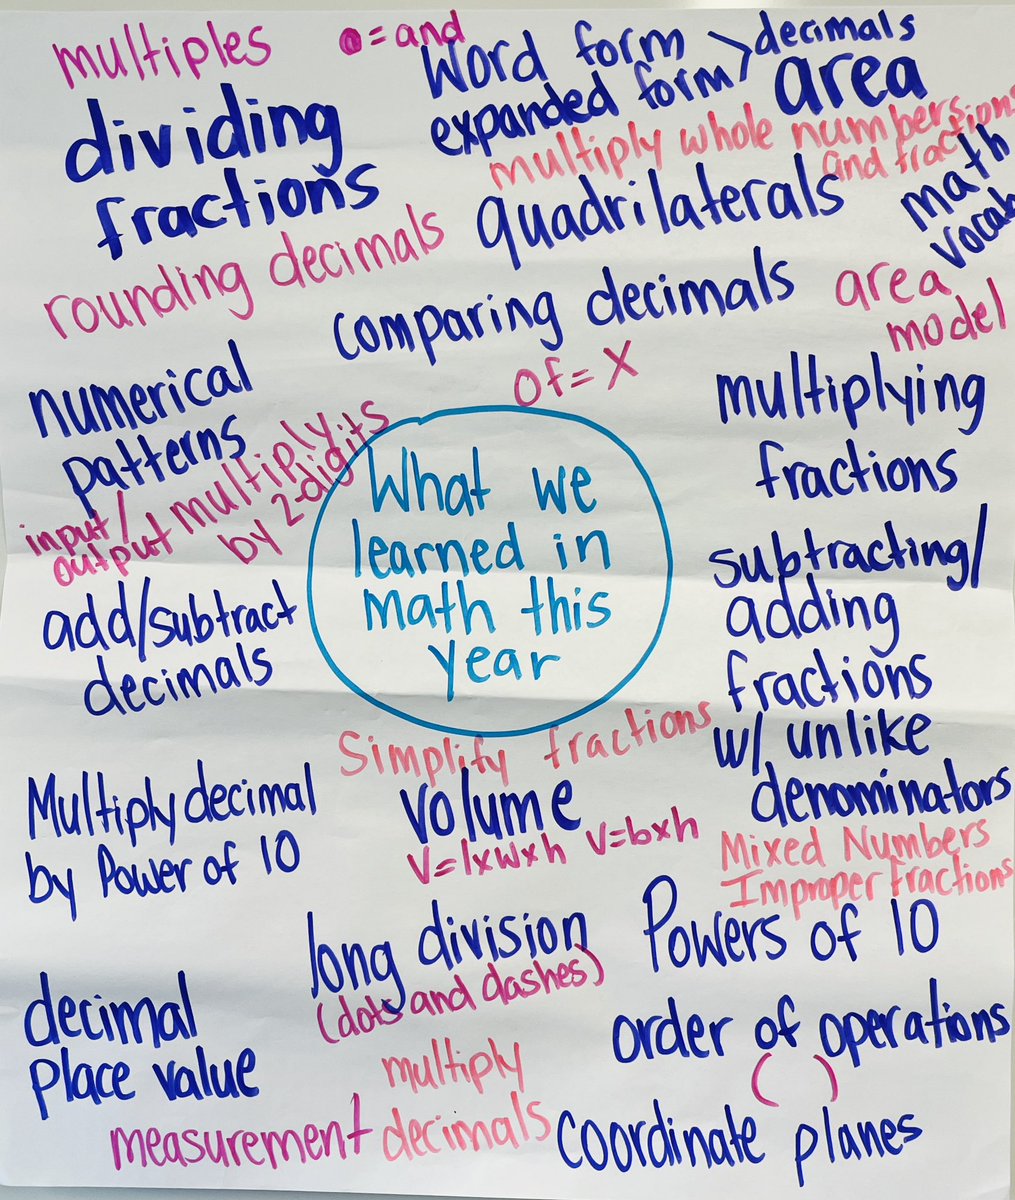 multiples
• = and
Word form
expanded form > decimals
area
dividing
fractions
multiply whole numbers
and fractions
math
vocab
quadrilaterals
rounding decimals
comparing decimals
area
model
of = x
numerical
patterns
input/
output
multiply
by 2-digits
multiplying
fractions
What we
learned in
math this
year
add/subtract
decimals
subtracting/
adding
fractions
w/ unlike
denominators
Simplify fractions
Multiply decimal
by Power of 10
volume
V=lxwxh V=bxh
Mixed Numbers
Improper fractions
long division
(dots and dashes)
Powers of 10
decimal
place value
order of operations
( )
multiply
decimals
measurement
coordinate planes